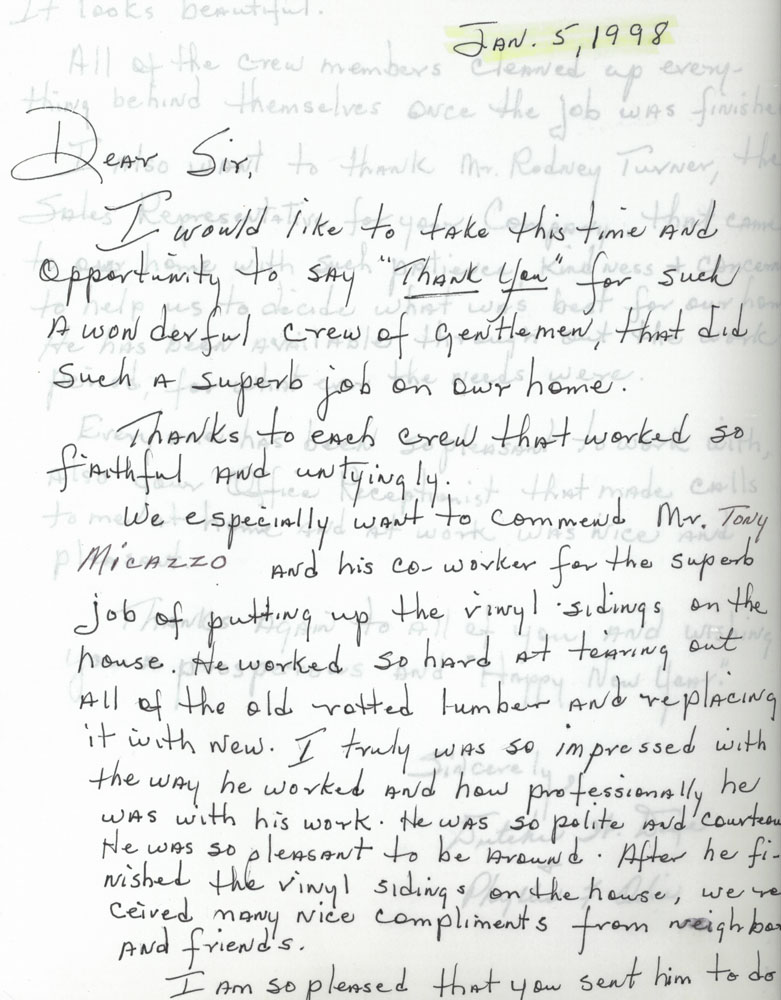 Jan. 5, 1998
Dear Sir,
I would like to take this time and
opportunity to say "Thank You" for such
a wonderful crew of gentlemen, that did
such a superb job on our home.
Thanks to each crew that worked so
faithful and untyingly.
We especially want to commend Mr. Tony
Micazzo and his co-worker for the superb
job of putting up the vinyl sidings on the
house. He worked so hard at tearing out
all of the old rotted lumber and replacing
it with new. I truly was so impressed with
the way he worked and how professionally he
was with his work. He was so polite and courteou
He was so pleasant to be around. After he fi-
nished the vinyl sidings on the house, we re
ceived many nice compliments from neighbo
and friends.
I am so pleased that you sent him to do